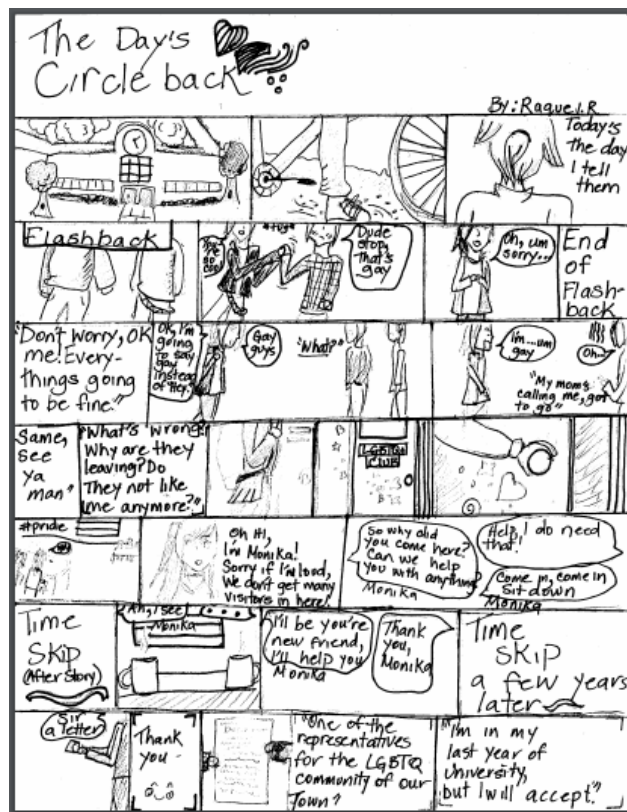 The Day's
Circle back
By: Raquel.R
Today's
the day
I tell
them
Flashback
Dude
stop,
that's
gay
Oh, um
sorry...
End
of
Flash-
back
"Don't worry, OK
me! Every-
things going
to be fine."
Ok, I'm
going
to say
gay
instead
of Hey.
Gay
guys
"What?"
I'm...um
gay
Oh
"My mom's
calling me, got
to go"
Same,
see
ya
man"
"What's wrong?
Why are they
leaving? Do
They not like
me anymore?"
LGBTQ
CLUB
#pride
Oh Hi,
I'm Monika!
Sorry if I'm loud,
We don't get many
visitors in here!
So why did
you come here?
Can we help
you with anything?
Monika
Help, I do need
that!
Come in, come in
Sit down
Monika
Time
SKIP
(After Story)
Ah, I see
...
Monika
I'll be you're
new friend,
I'll help you
Monika
Thank
you,
Monika
Time
SKIP
a few years
later
Sir
a letter
Thank
you
"One of the
representatives
for the LGBTQ
community of our
Town"
"I'm in my
last year of
university,
but I will accept."